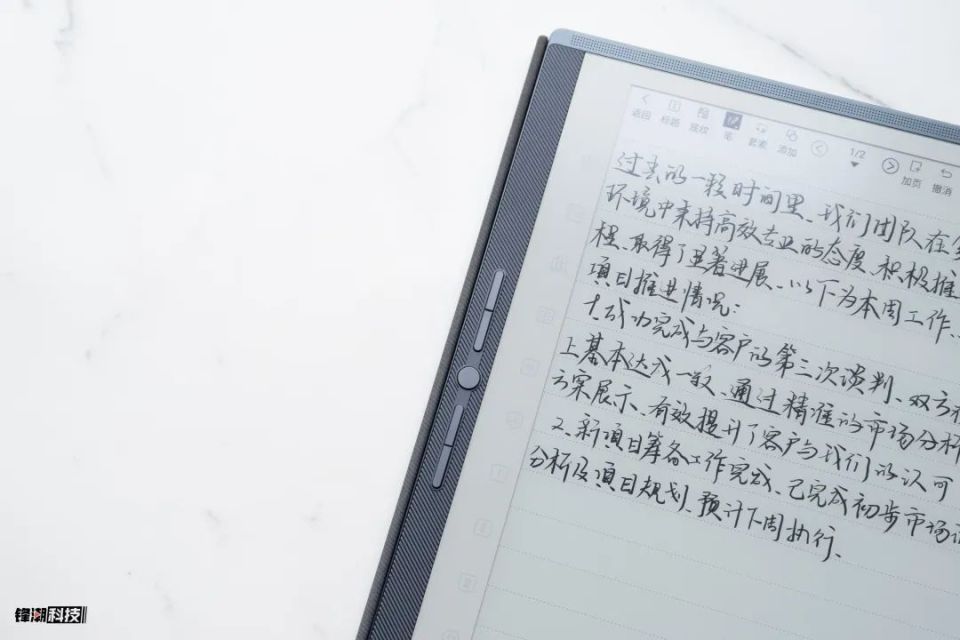 返回 标题 底纹 笔 套索 添加 1/2 加页 撤消
过去的一段时间里、我们团队在
环境中秉持高效专业的态度、积极推
程、取得了显著进展、以下为本周工作、
项目推进情况:
1.成功完成与客户的第三次谈判、双方
上基本达成一致、通过精准的市场分析
方案展示、有效提升了客户与我们的认可
2.新项目筹备工作完成、已完成初步市场
分析及项目规划、预计下周执行、
锋潮科技